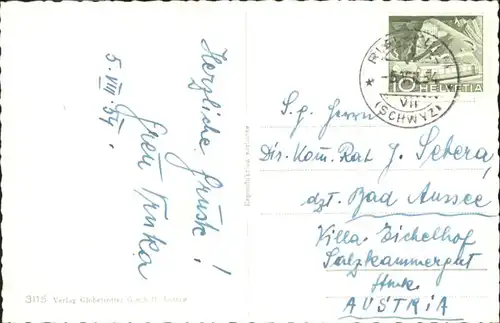 Herzliche Grüße!
5. VIII. 54.
3115 Verlag Globetrotter G.m.b.H. Luzern
Reproduktion verboten
10 HELVETIA
VII
(SCHWYZ)
S. g. Herrn
Dir. Kom. Rat J. Setera,
dzt. Bad Aussee
Villa Eichelhof
Salzkammergut
Stmk.
AUSTRIA